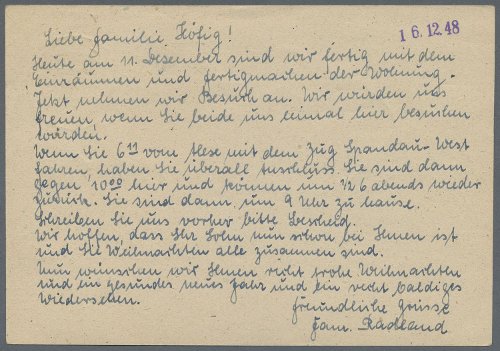 Liebe Familie Höfig!
16.12.48
Heute am 11. Dezember sind wir fertig mit dem
Einräumen und fertigmachen der Wohnung.
Jetzt nehmen wir Besuch an. Wir würden uns
freuen, wenn Sie beide uns einmal hier besuchen
würden.
Wenn Sie 6 11 vom mit dem Zug Spandau-West
fahren, haben Sie überall Anschluss. Sie sind dann
gegen 10 20 hier und können um 1/2 6 abends wieder
zurück. Sie sind dann um 9 Uhr zu hause.
Schreiben Sie uns vorher bitte Bescheid.
Wir hoffen, dass Ihr Sohn nun schon bei Ihnen ist
und Sie Weihnachten alle zusammen sind.
Nun wünschen wir Ihnen recht frohe Weihnachten
und ein gesundes neues Jahr und ein recht baldiges
Wiedersehen.
Freundliche Grüsse
Fam. Radland